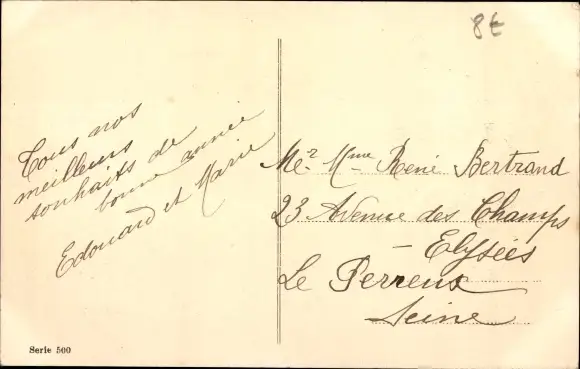 8€
Tous nos
meilleurs
souhaits de
bonne année
Edouard et Marie
Mer Mme René Bertrand
23 Avenue des Champs
- Elysées
Le Perreux
Seine
Serie 500